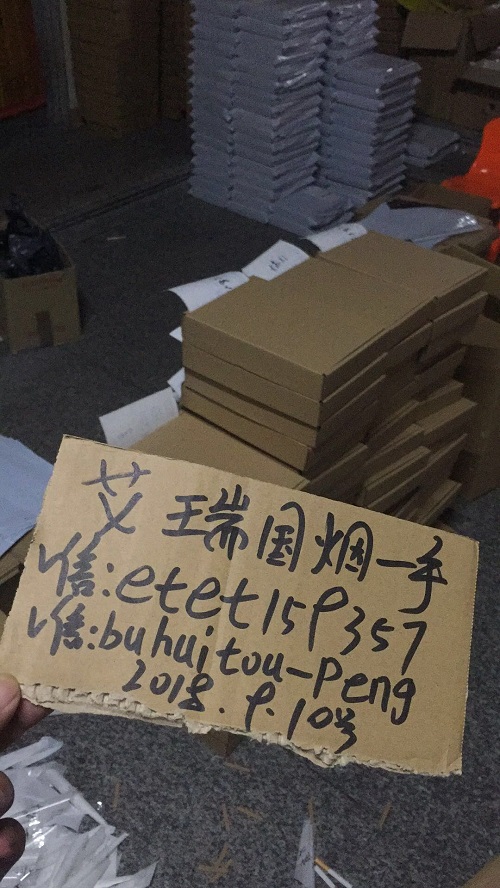 艾瑞国烟一手
V信:etet159357
V信:buhuitou-peng
2018.9.10号